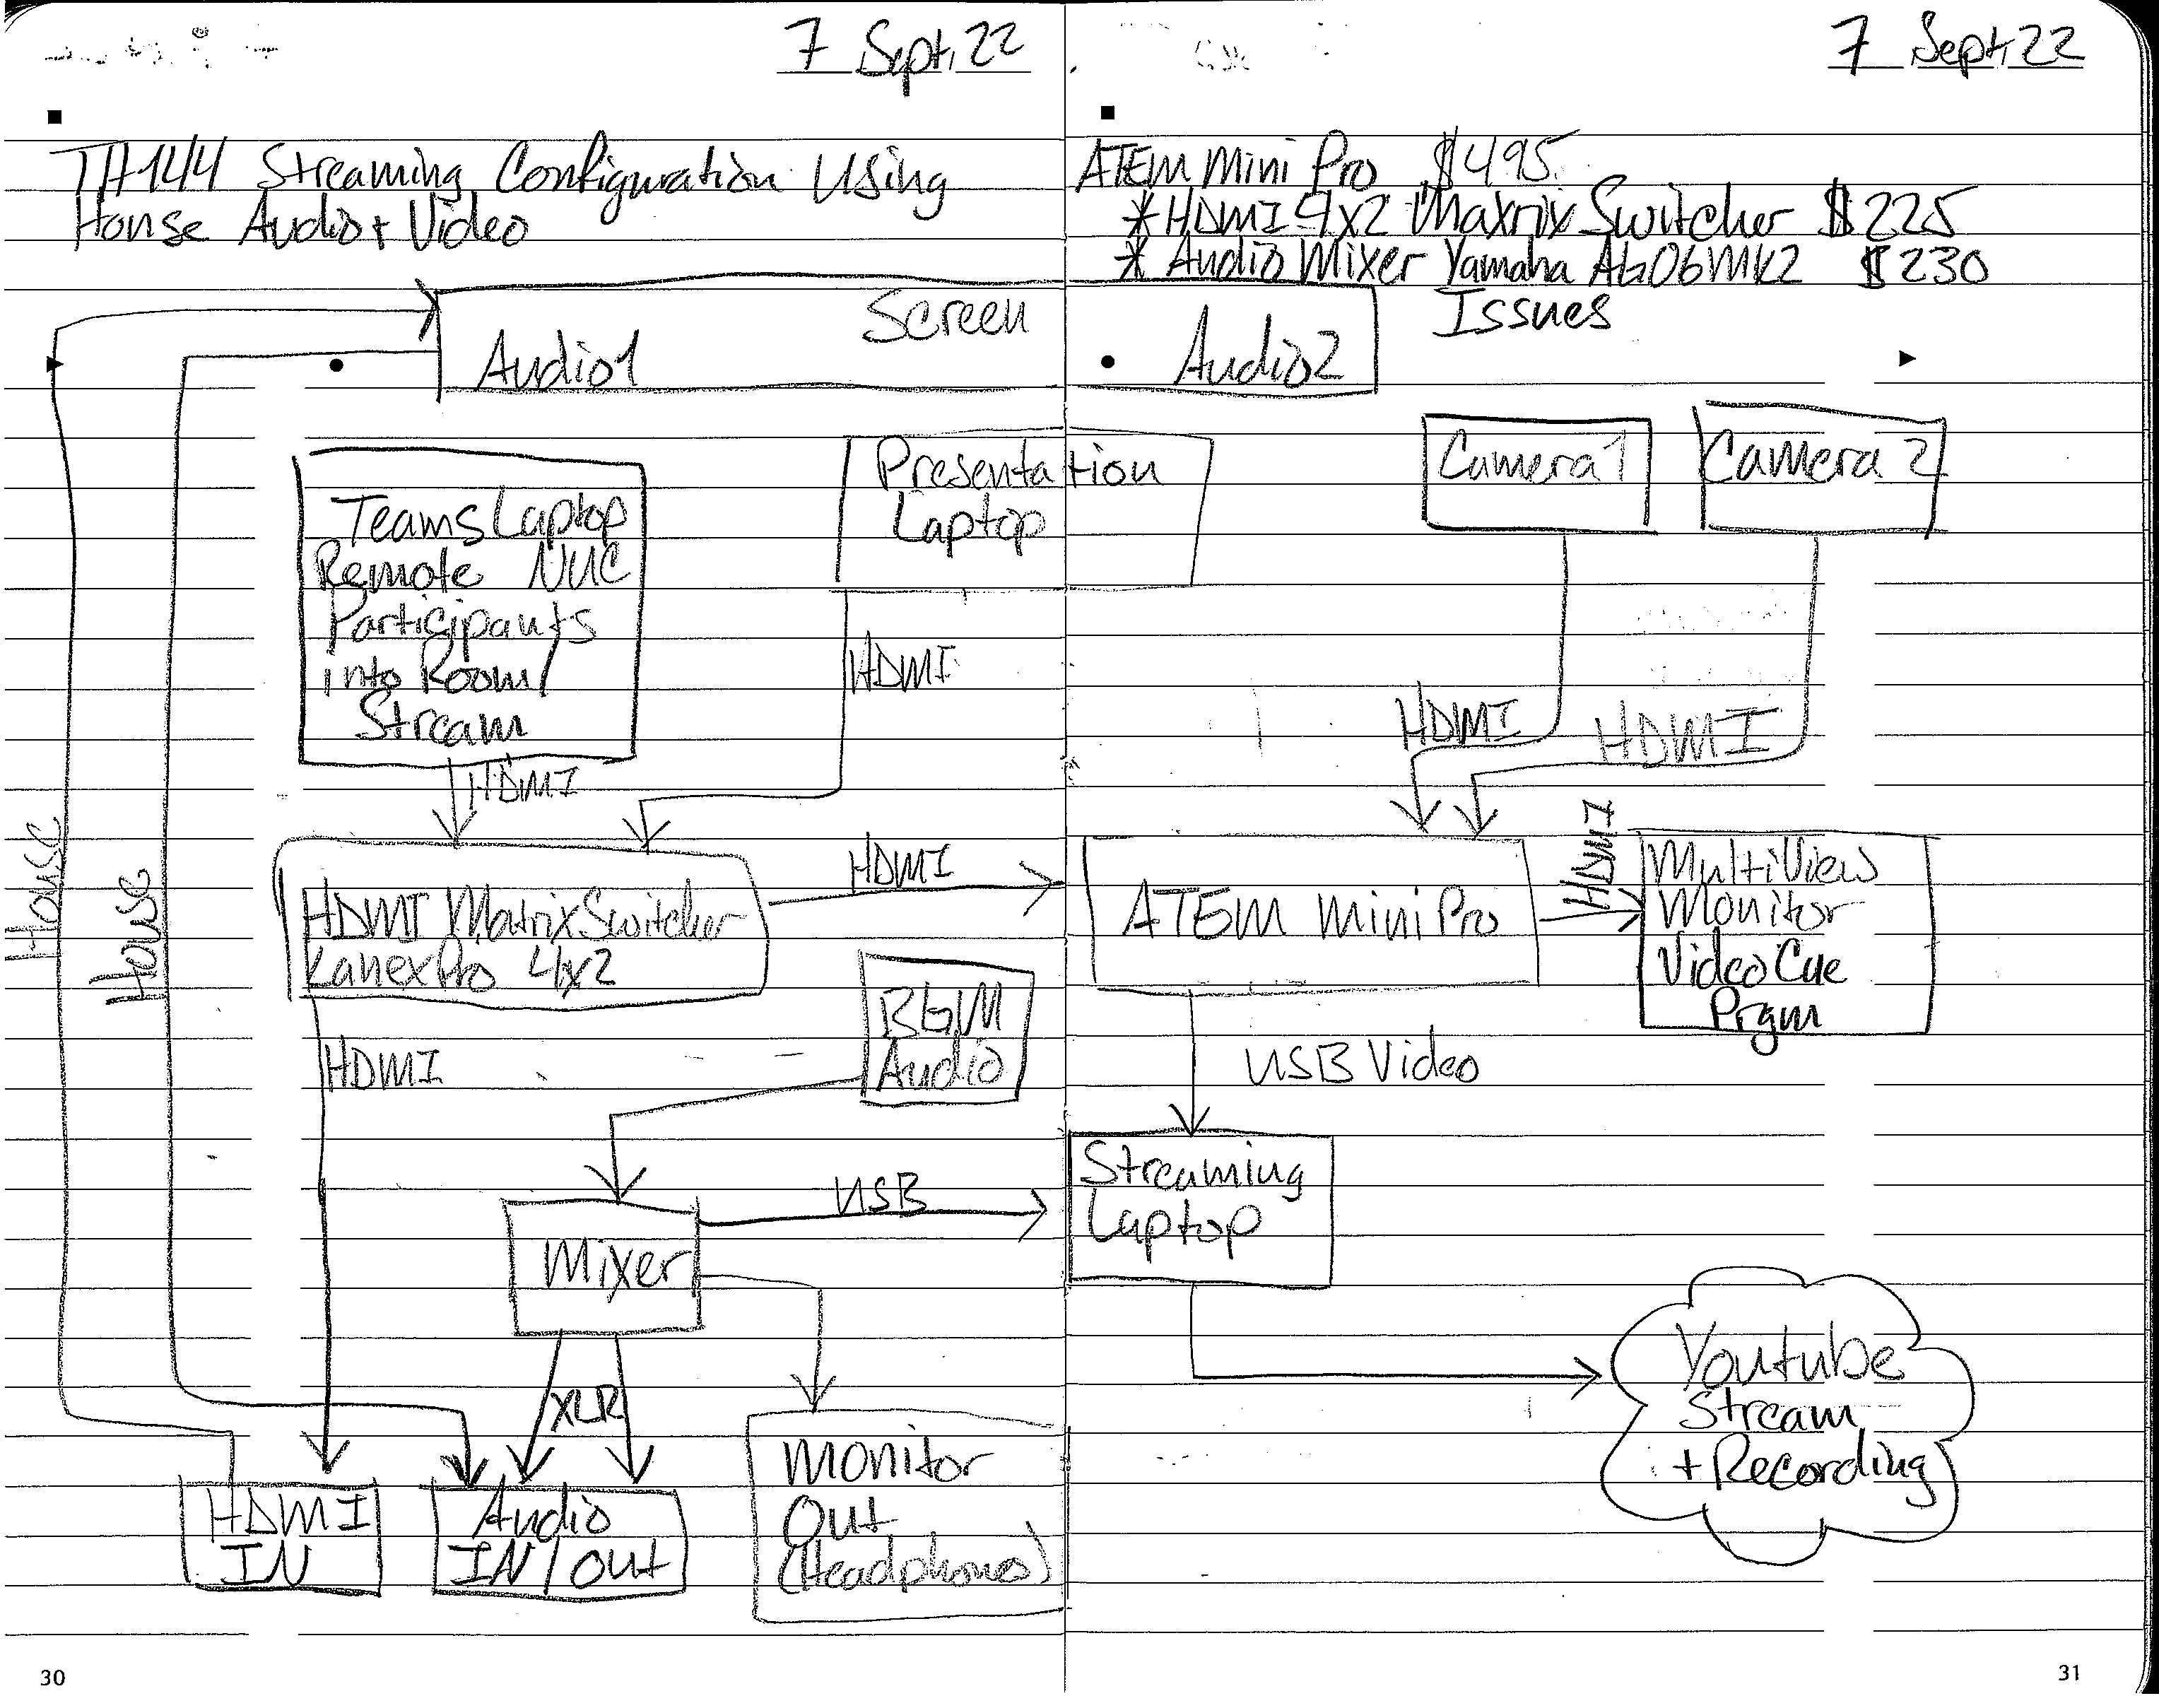 7 Sept, 22
TH144 Streaming Configuration Using
House Audio + Video
Screen
Audio1
Teams Laptop
Remote NUC
Participants
into Room/
Stream
Presentation
Laptop
HDMI
HDMI
House
House
HDMI Matrix Switcher
KanexPro 4x2
HDMI
BGM
Audio
HDMI
USB
Mixer
XLR
HDMI
IN
Audio
IN/OUT
Monitor
Out
(Headphones)
30
7 Sept, 22
ATEM Mini Pro $495
*HDMI 4x2 Maxrix Switcher $225
* Audio Mixer Yamaha AG06MK2 $230
Issues
Audio2
Camera 1
Camera 2
HDMI
HDMI
HDMI
ATEM Mini Pro
MultiView
Monitor
Video Cue
Prgm
USB Video
Streaming
Laptop
Youtube
Stream
+ Recording
31